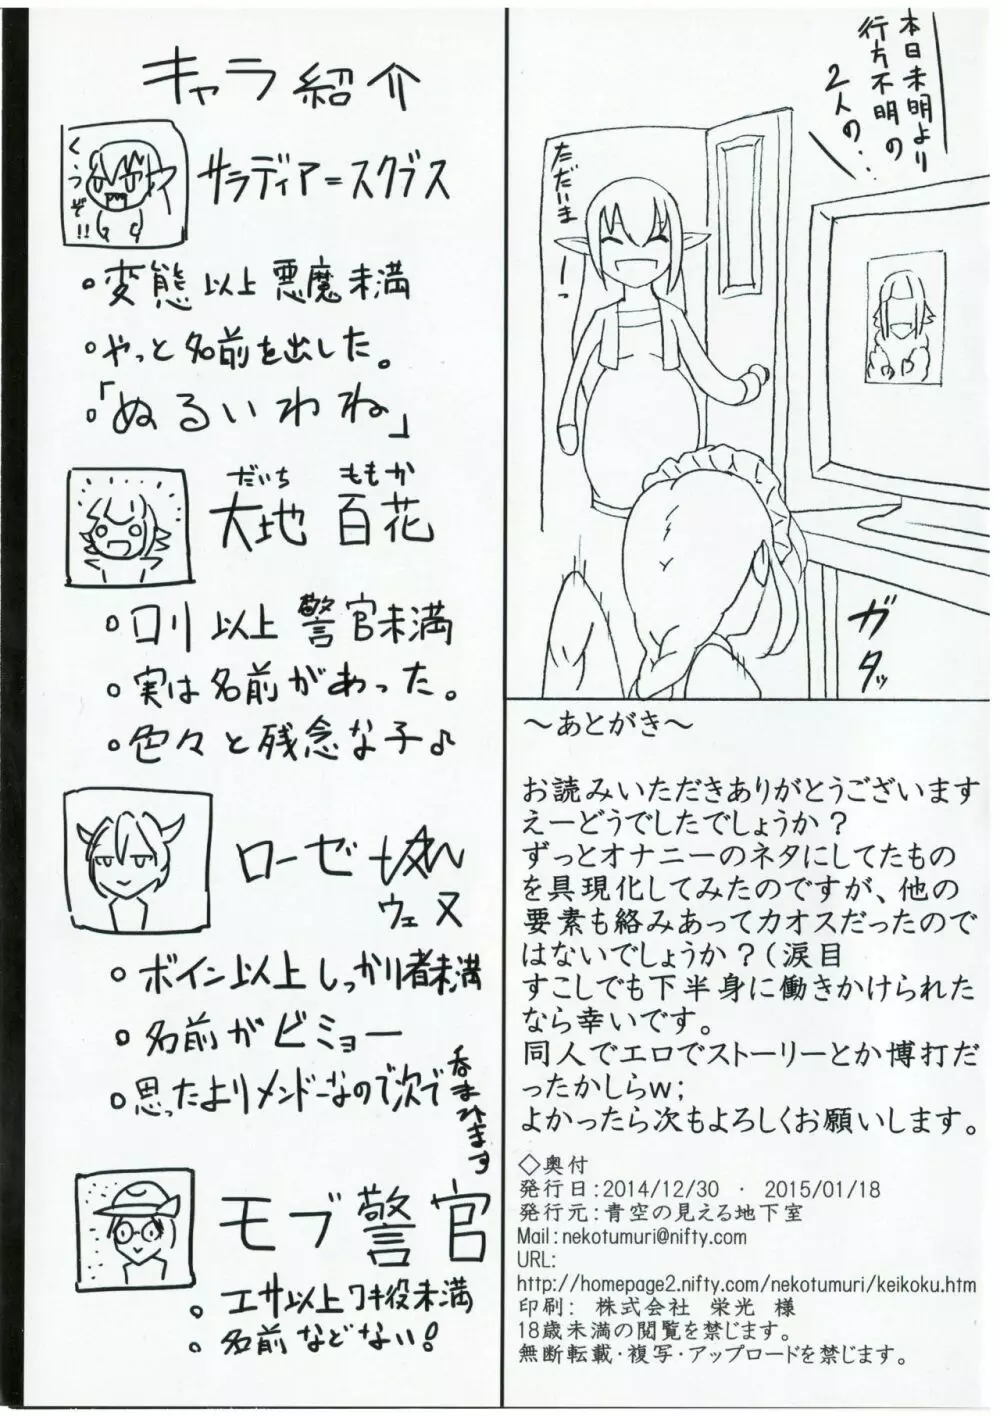 本日未明より
行方不明の
2人の‥
ただいまーっ
ガタッ
キャラ紹介
くうぞ!!
サラディア=スクブス
・変態以上悪魔未満
・やっと名前を出した。
・「ぬるいわね」
だいち ももか
大地 百花
・ロリ以上 警官未満
・実は名前があった。
・色々と残念な子♪
ローゼ
ウェヌ
・ボイン以上しっかり者未満
・名前がビミョー
・思ったよりメンドーなので次で呑まれます
モブ警官
・エサ以上ワキ役未満
・名前などない!
～あとがき～
お読みいただきありがとうございます
えーどうでしたでしょうか？
ずっとオナニーのネタにしてたもの
を具現化してみたのですが、他の
要素も絡みあってカオスだったので
はないでしょうか？(涙目
すこしでも下半身に働きかけられた
なら幸いです。
同人でエロでストーリーとか博打だ
ったかしらw;
よかったら次もよろしくお願いします。
◇奥付
発行日:2014/12/30 ・ 2015/01/18
発行元:青空の見える地下室
Mail:nekotumuri@nifty.com
URL:
http://homepage2.nifty.com/nekotumuri/keikoku.htm
印刷: 株式会社 栄光 様
18歳未満の閲覧を禁じます。
無断転載・複写・アップロードを禁じます。